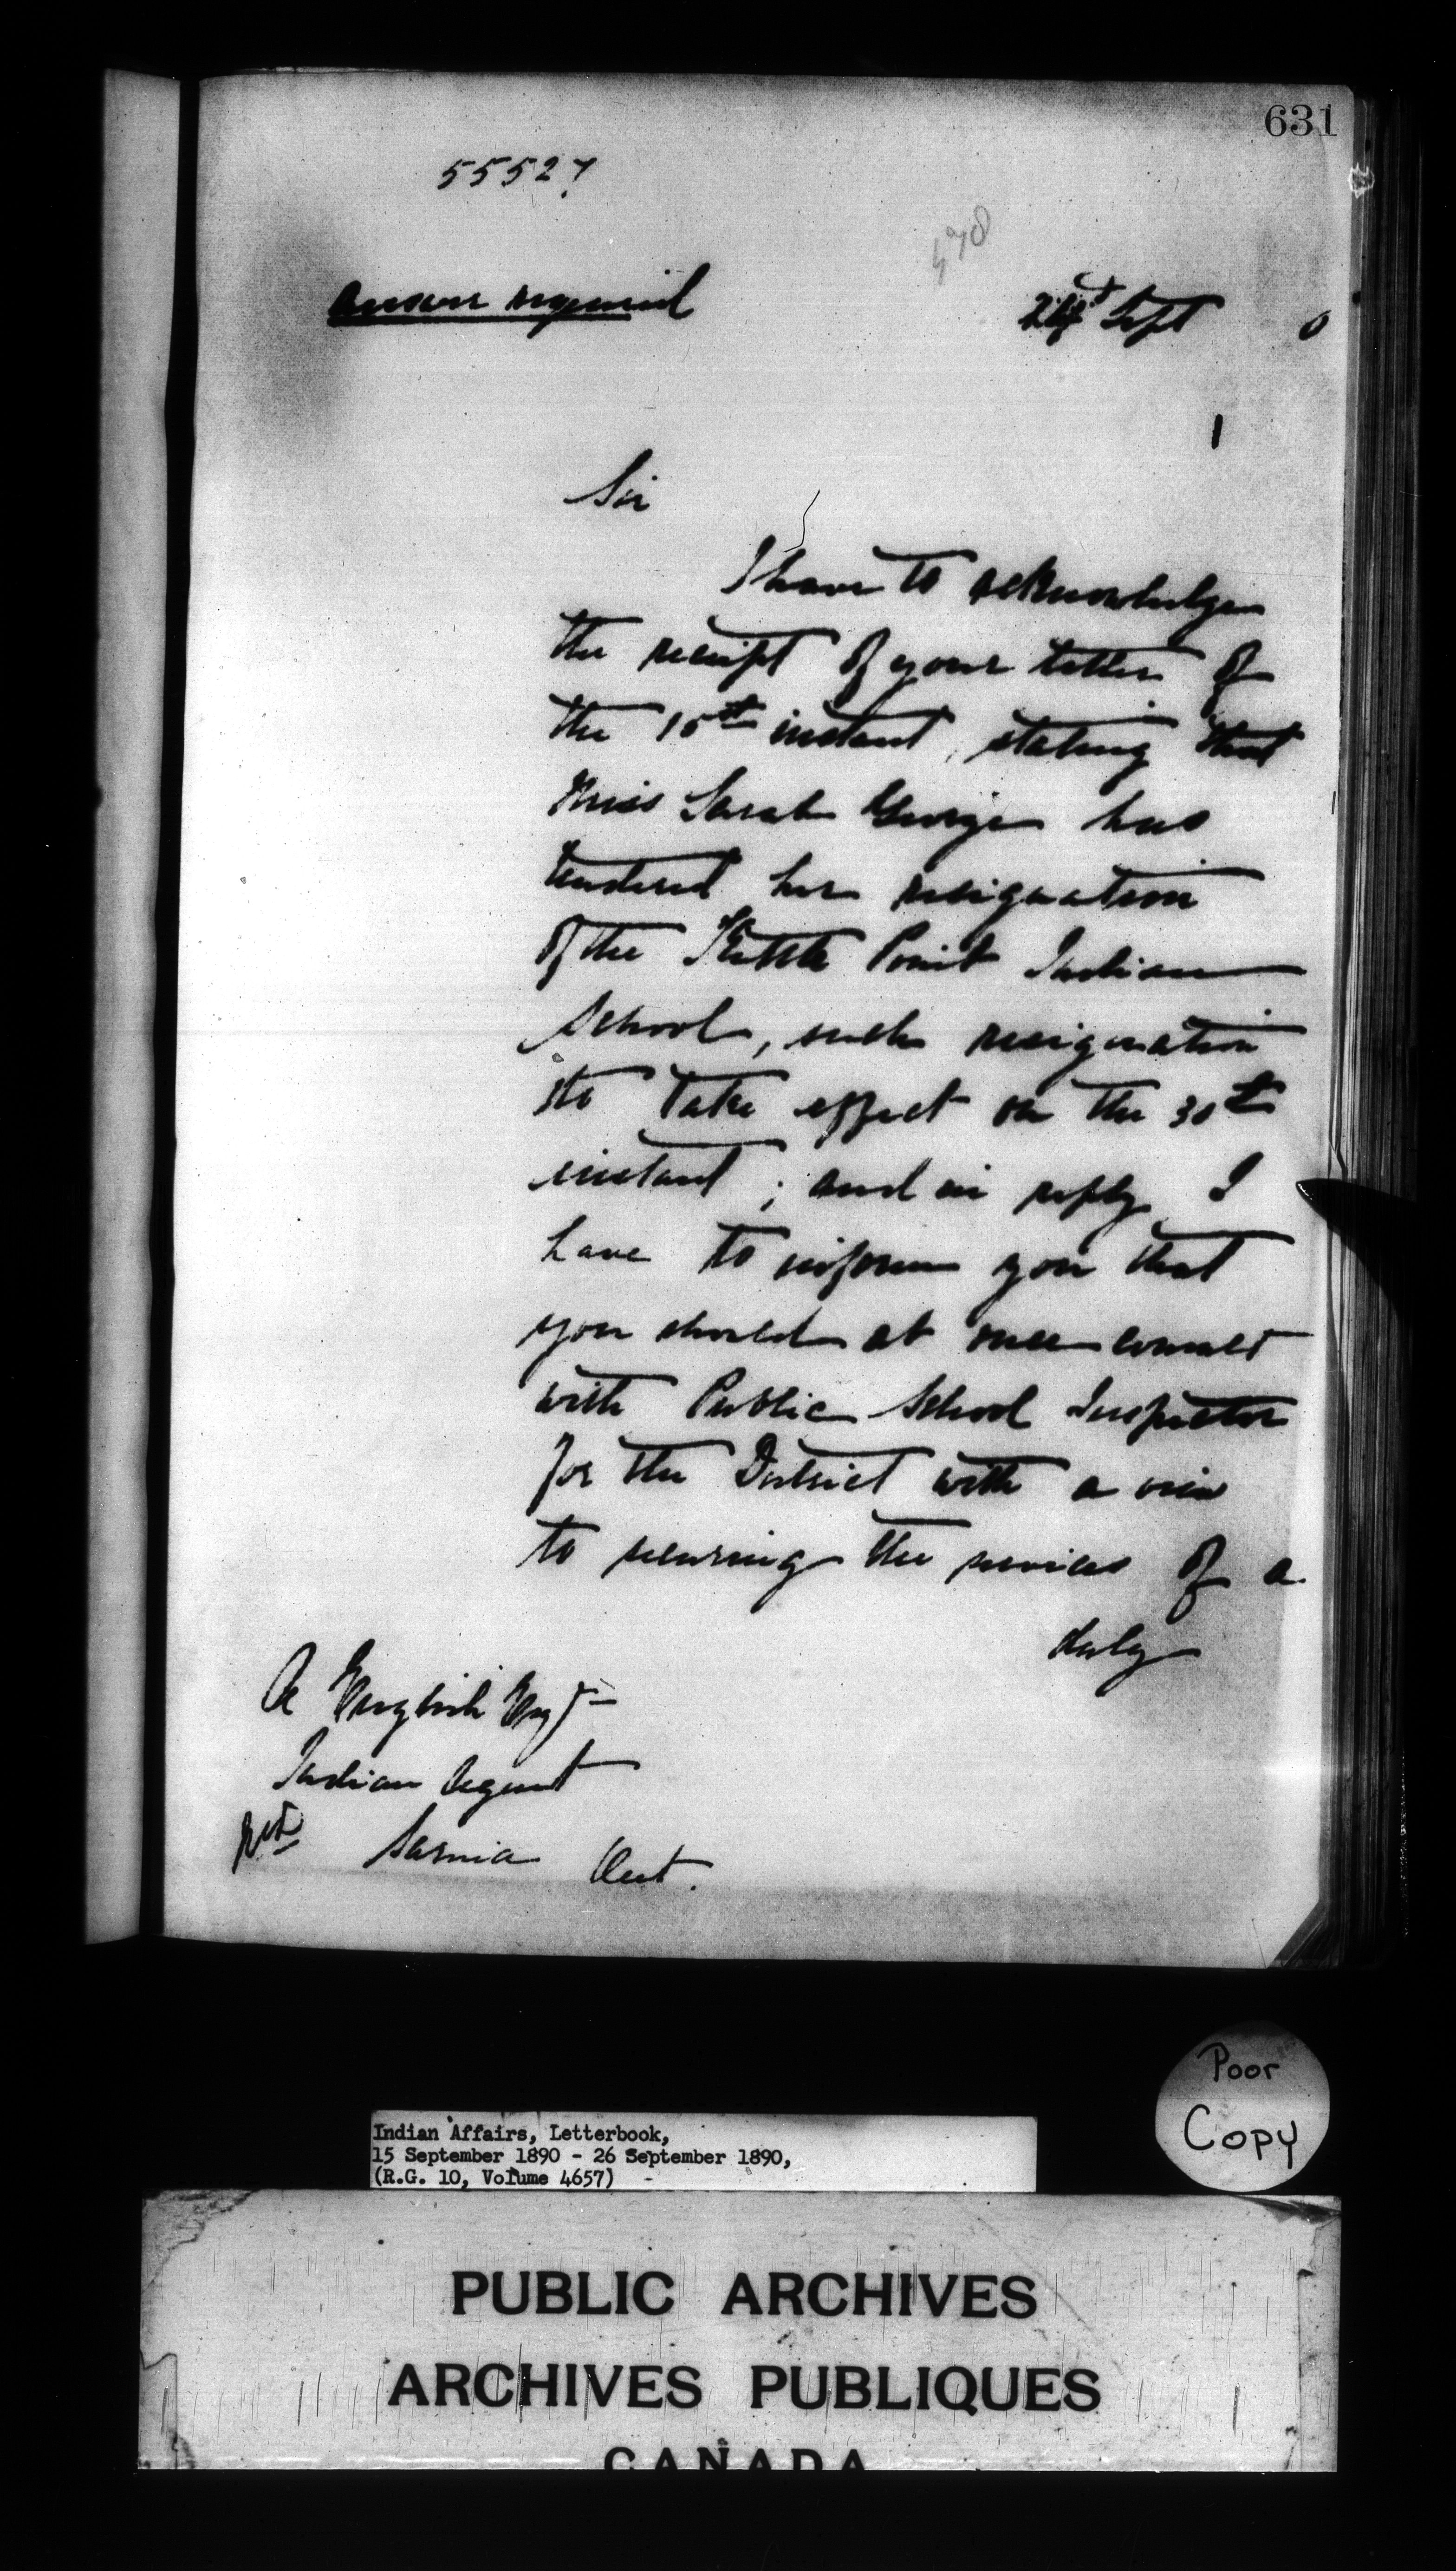 631
55527
Answer required
24th Sept 0
Sir
I have to acknowledge
the receipt of your letter of
the 15th instant, stating that
Miss Sarah George has
tendered her resignation
of the Kettle Point Indian
School, such resignation
to take effect on the 30th
instant; and in reply I
have to inform you that
you should at once consult
with Public School Inspector
for the District with a view
to securing the services of a
duly
A English Esqr
Indian Agent
Sarnia Ont.
Poor
Copy
Indian Affairs, Letterbook,
15 September 1890 - 26 September 1890,
(R.G. 10, Volume 4657)
PUBLIC ARCHIVES
ARCHIVES PUBLIQUES
CANADA